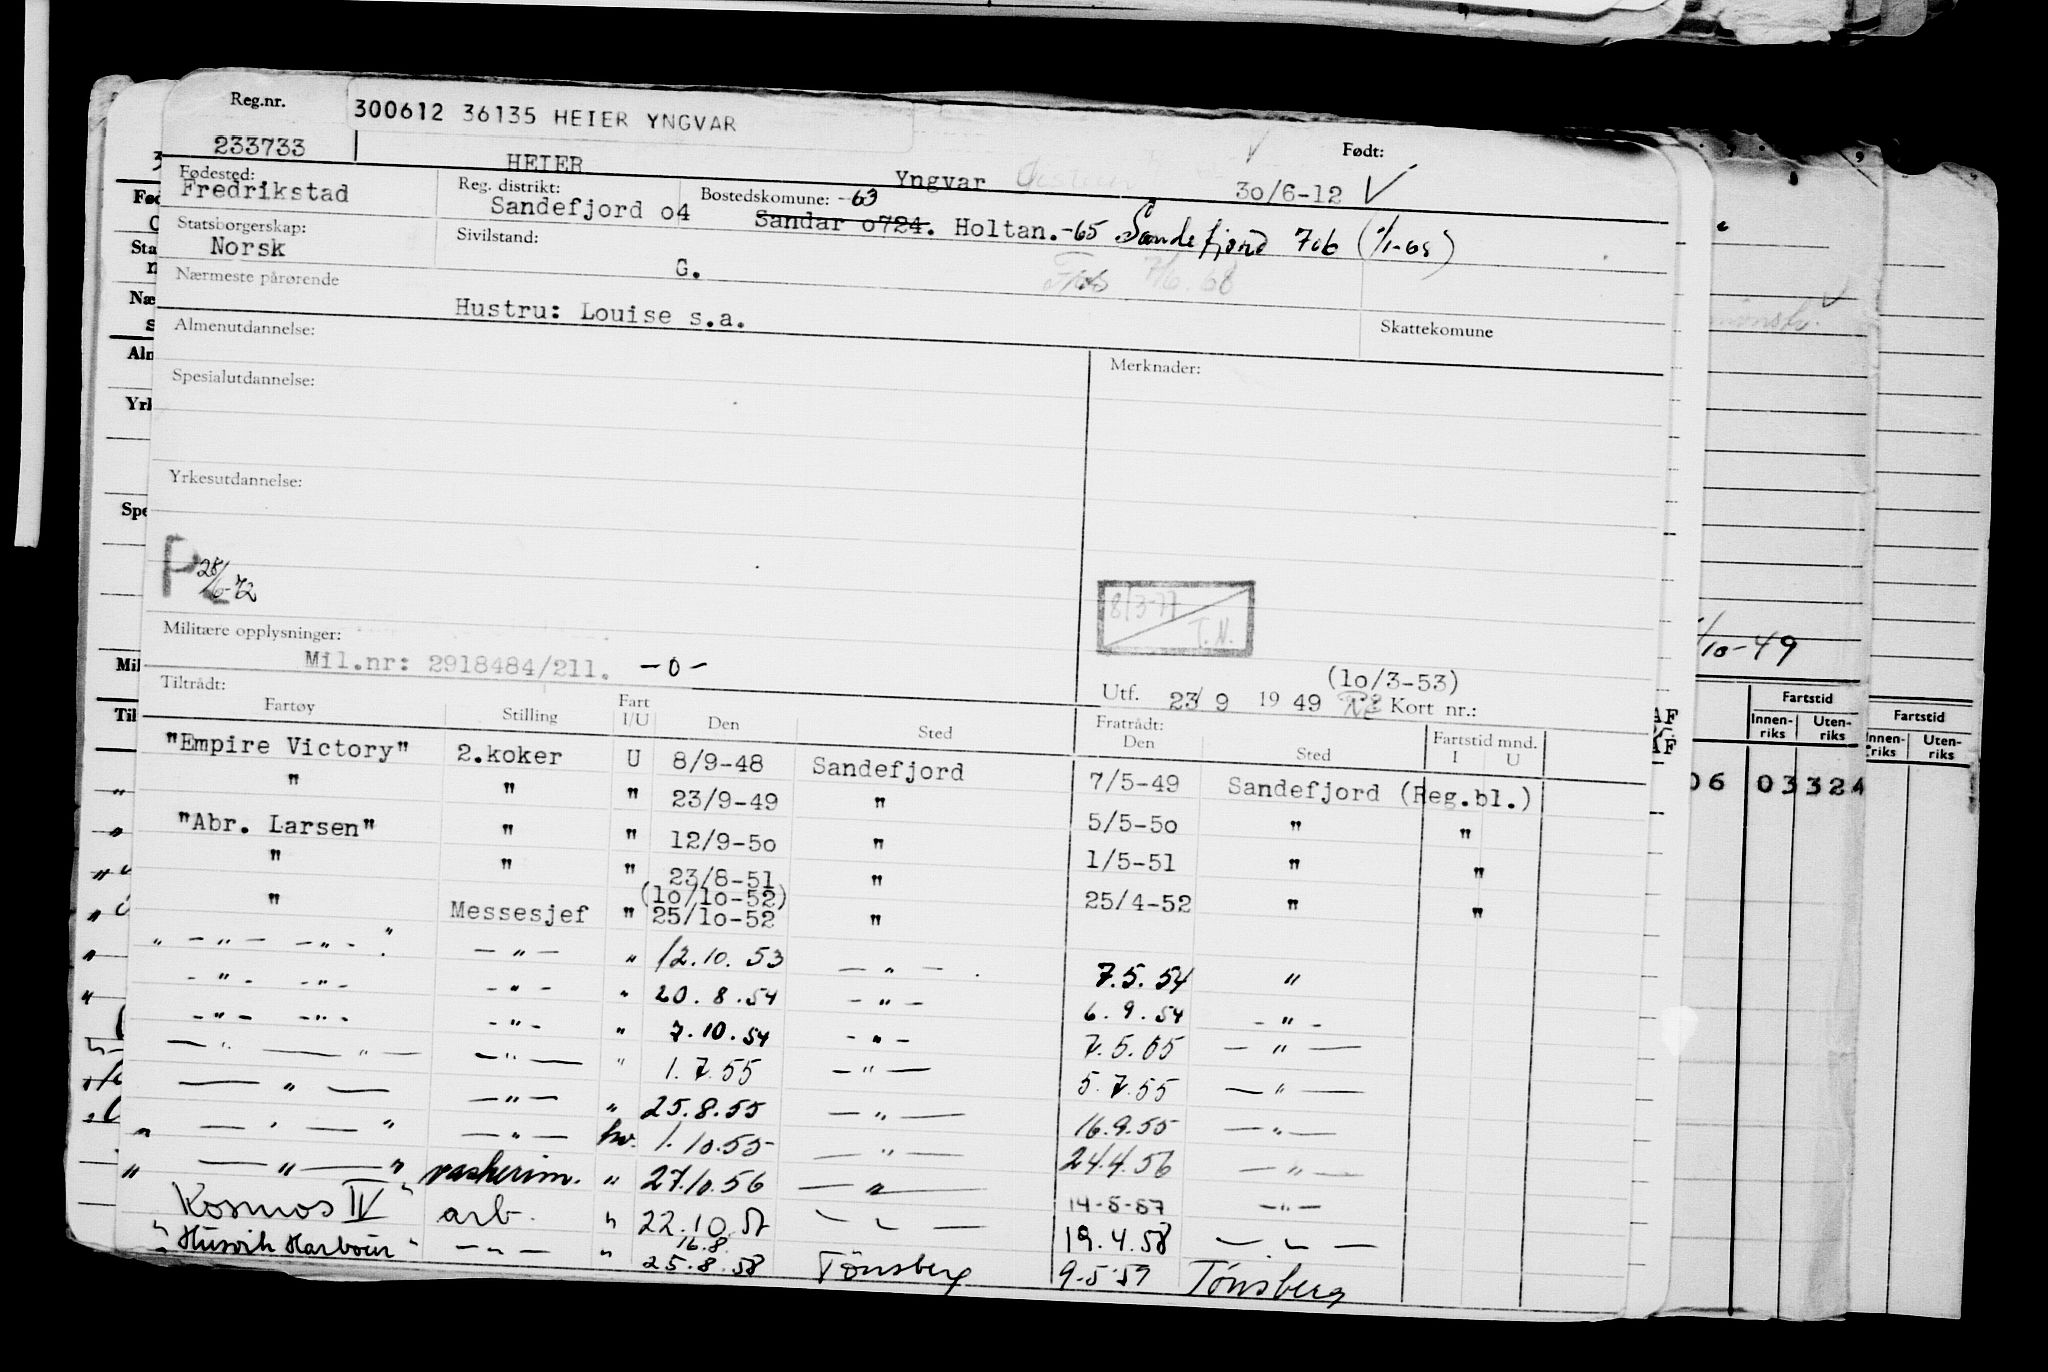 Reg.nr. 300612 36135 HEIER YNGVAR
233733 HEIER Yngvar Født: 30/6-12 ✓
Fødested: Reg. distrikt: Bostedskomune: -63
Fredrikstad Sandefjord o4 Sandar o724. Holtan. -65 Sandefjord 706 (1/1-68)
Statsborgerskap: Sivilstand:
Norsk G. 7/6.68
Nærmeste pårørende
Hustru: Louise s.a.
Almenutdannelse: Skattekomune
Spesialutdannelse: Merknader:
Yrkesutdannelse:
P 28/6-72
8/3-77 T.N.
Militære opplysninger:
Mil.nr: 2918484/211. -o-
(10/3-53)
Utf. 23/9 1949 Kort nr.:
Tiltrådt: Fratrådt:
Fartøy Stilling Fart I/U Den Sted Den Sted Fartstid mnd. I U
"Empire Victory" 2.koker U 8/9-48 Sandefjord 7/5-49 Sandefjord (Reg.bl.)
" " " 23/9-49 " 5/5-50 " "
"Abr. Larsen" " " 12/9-50 " 1/5-51 " "
" " " 23/8-51 " 25/4-52 " "
(10/10-52)
" Messesjef " 25/10-52 "
" - " - - " - " - " - " 12.10.53 - " - 7.5.54 "
- " - - " - - " - " 20.8.54 - " - 6.9.54 - " -
- " - - " - - " - " 7.10.54 - " - 7.5.55 - " -
- " - " - - " - " 1.7.55 - " - 5.7.55 - " -
- " - - " - " 25.8.55 - " - 16.9.55 - " -
" - " - " - " - hv. 1.10.55 - " - 24.4.56 - " -
" - " - " vaskerim. " 27.10.56 - " - 14-5-57 - " -
Kosmos IV " arb. " 22.10.57 - " - 19.4.58 - " -
16.8.
" Husvik Harbour " - " - " 25.8.58 Tønsberg 9.5.59 Tønsberg
/10-49
Fartstid
Innen-riks Uten-riks
06 03 324
Fartstid
Innen-riks Uten-riks